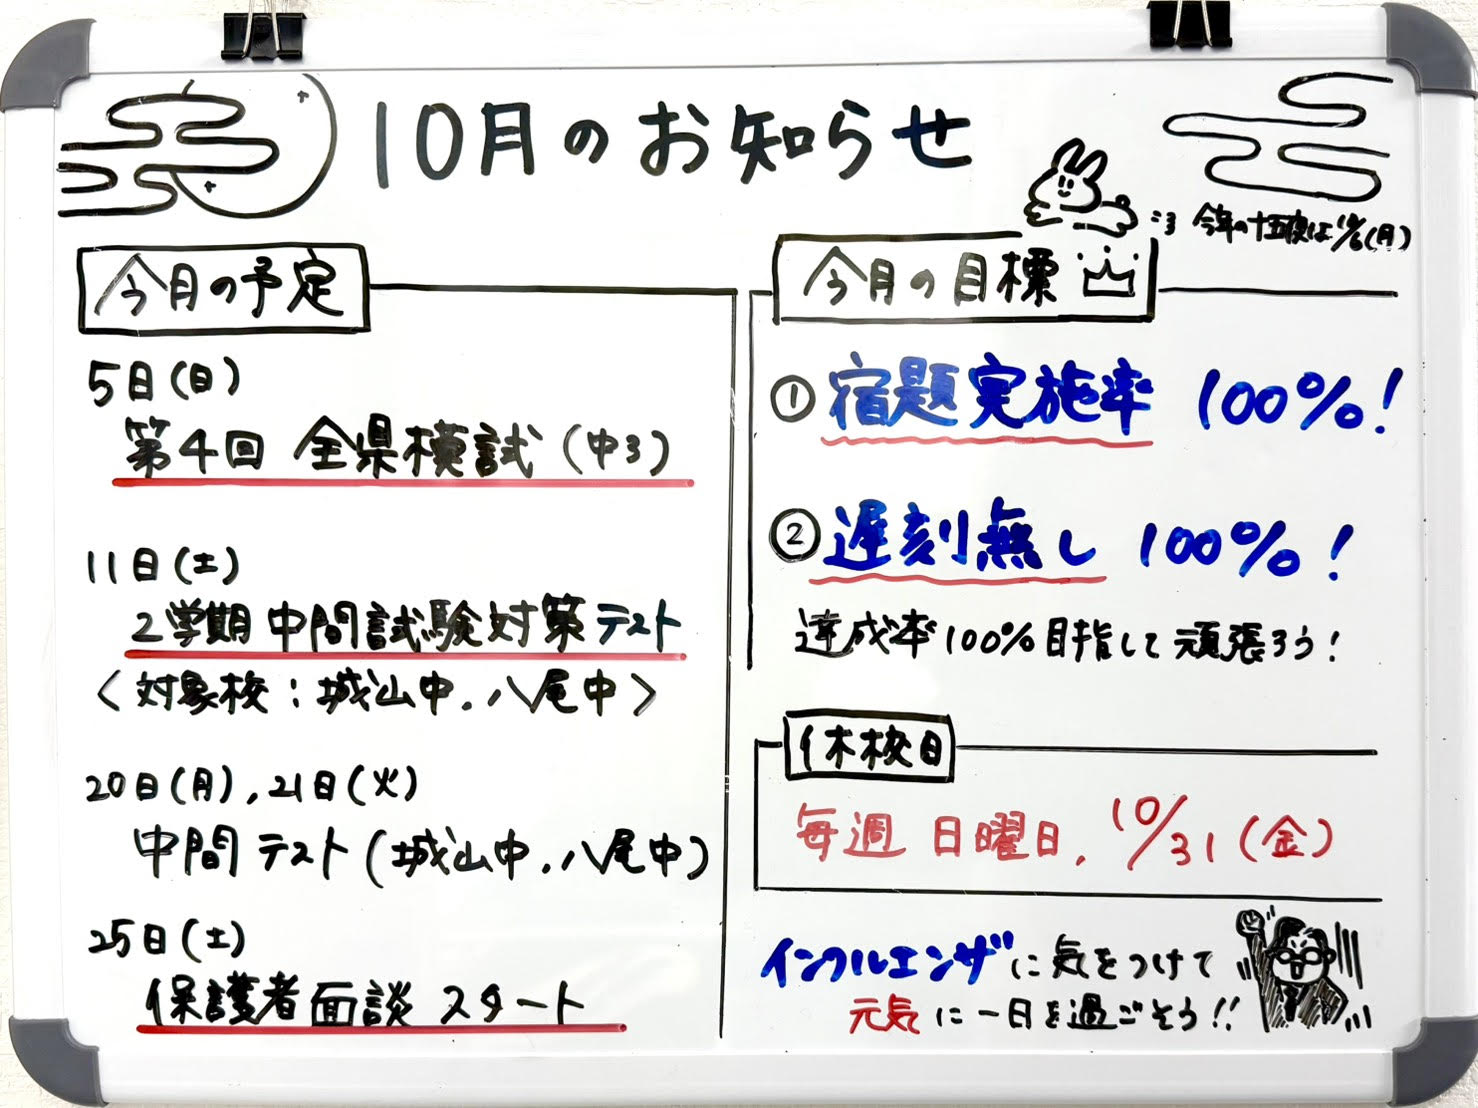 10月のお知らせ
今年の十五夜は10/6(月)
今月の予定
5日(日)
第4回 全県模試(中3)
11日(土)
2学期中間試験対策テスト
<対象校:城山中、八尾中>
20日(月),21日(火)
中間テスト(城山中、八尾中)
25日(土)
保護者面談スタート
今月の目標
①宿題実施率 100%!
②遅刻無し 100%!
達成率100%目指して頑張ろう!
休校日
毎週 日曜日、10/31(金)
インフルエンザに気をつけて
元気に一日を過ごそう!!